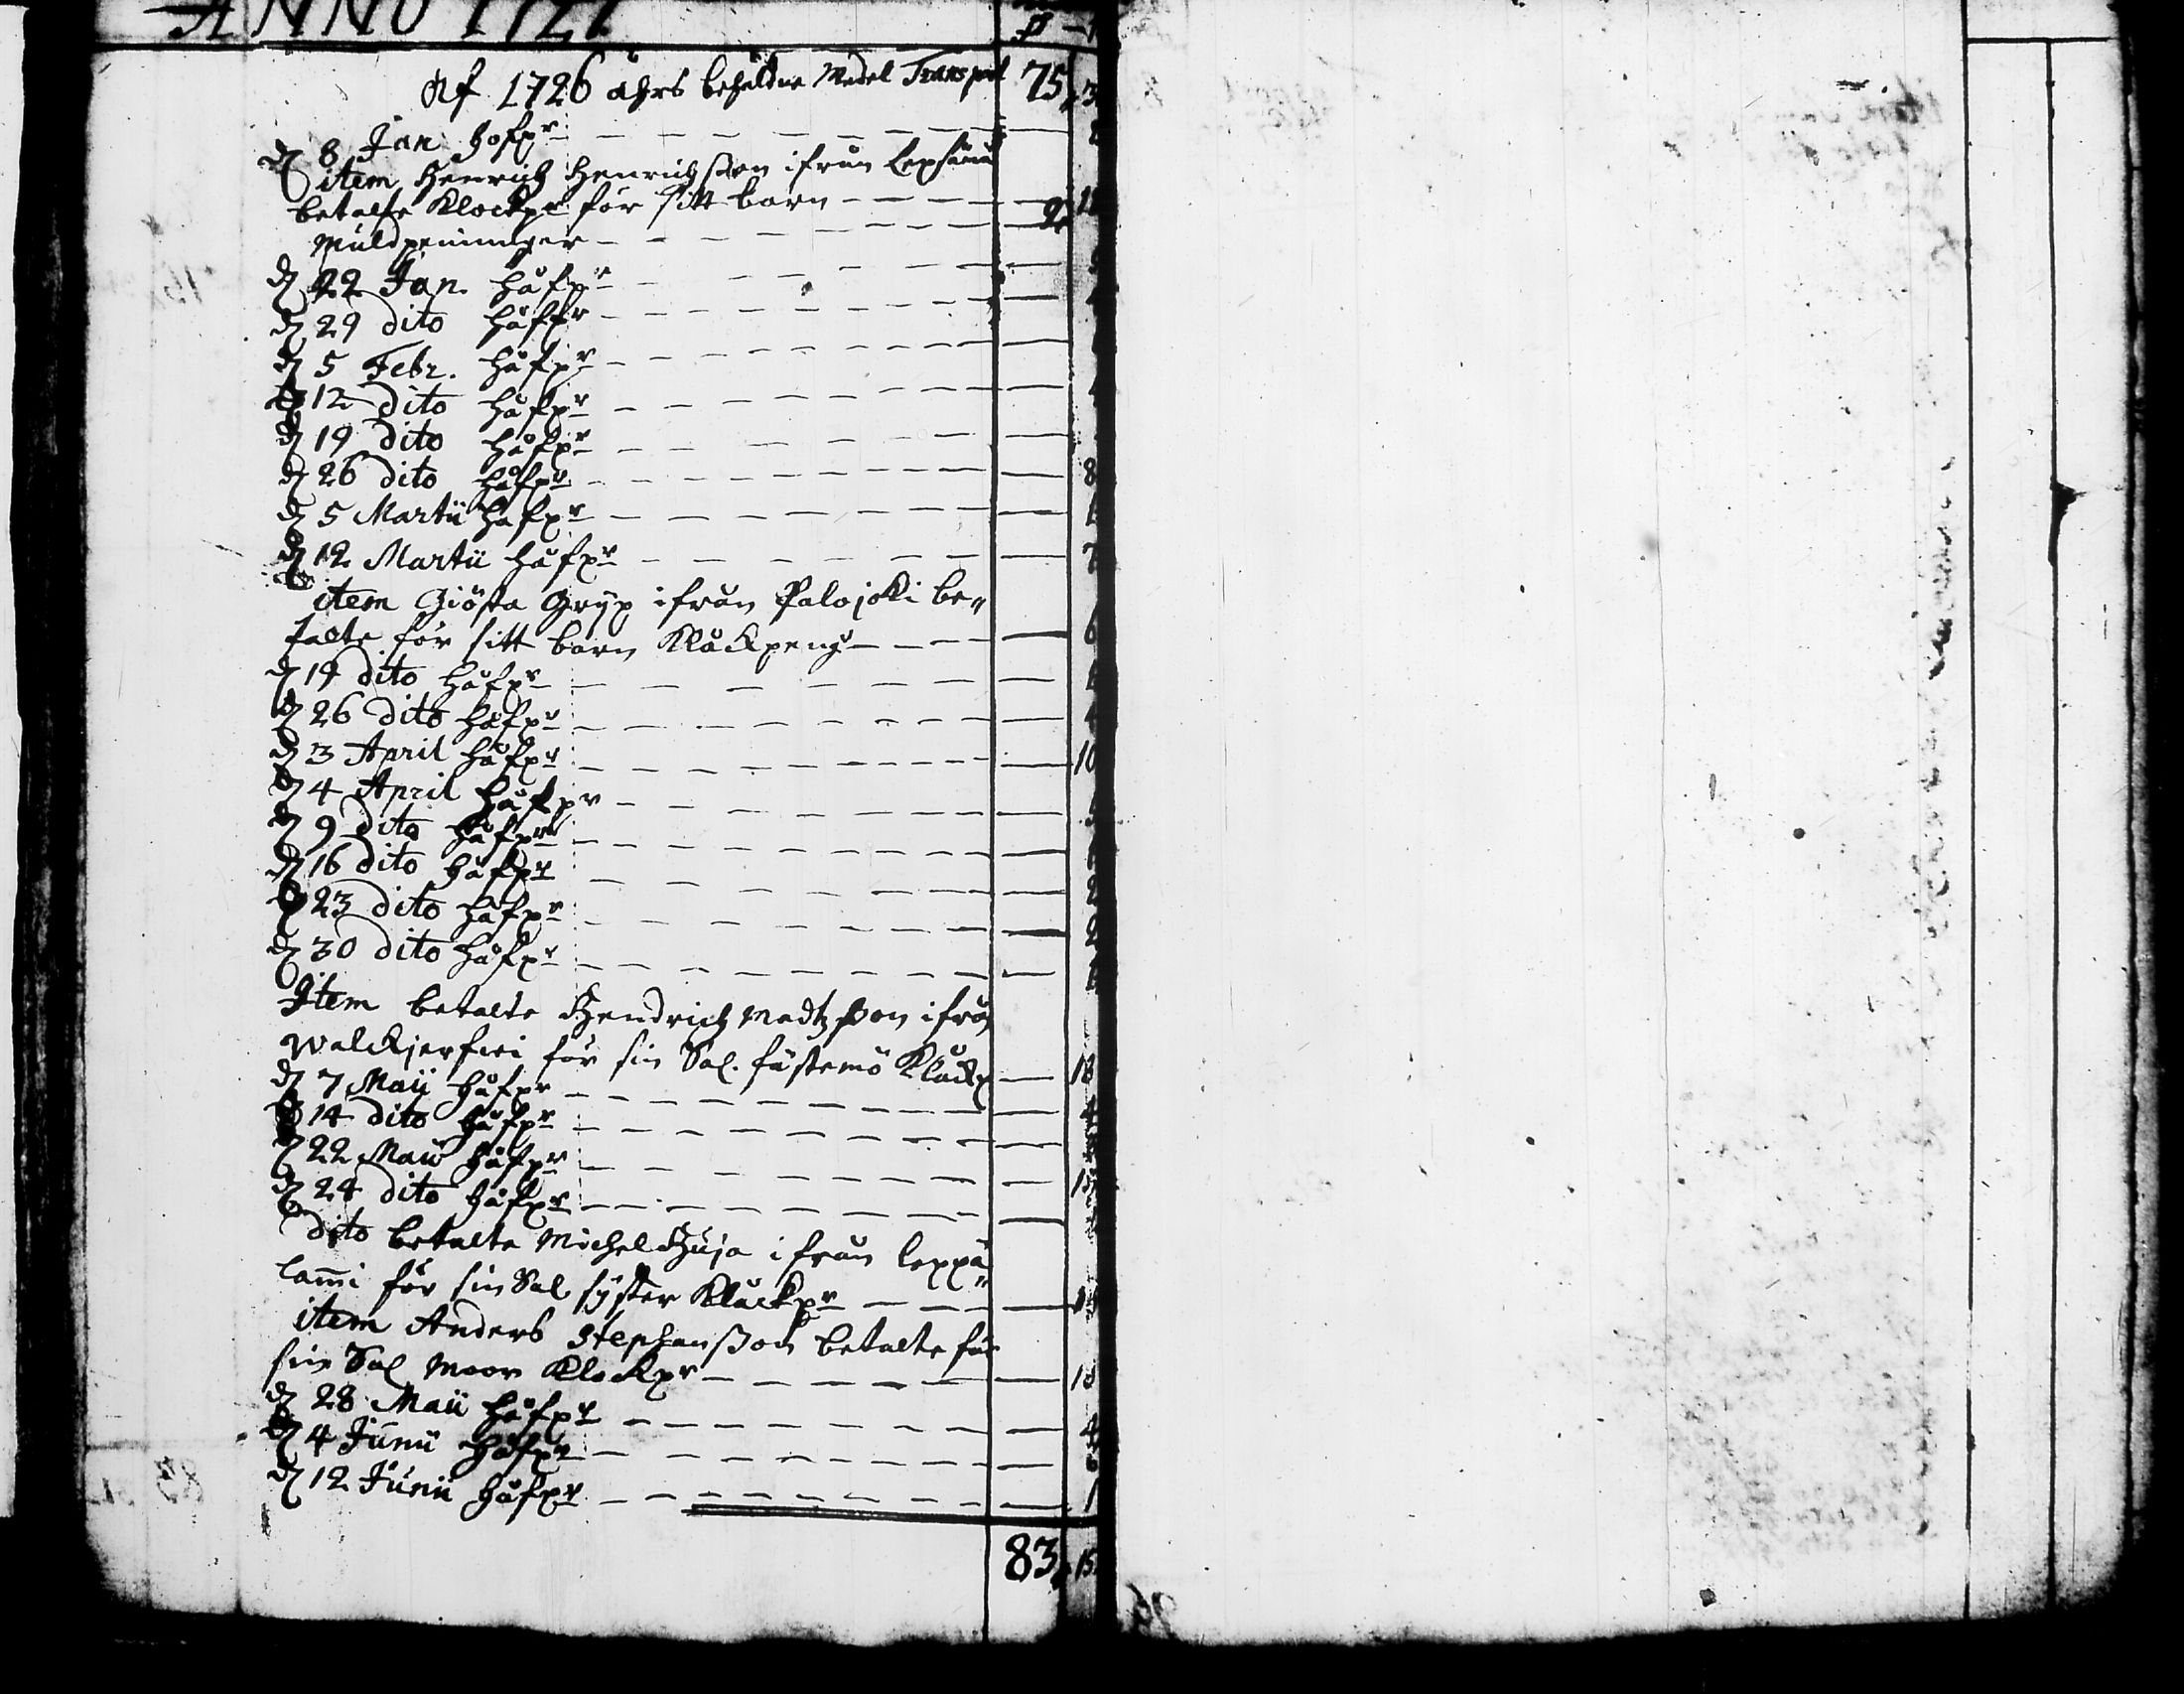 ANNO 1727
Af 1726 åhrs behåldne Medel Transport 75
d 8 Jan håfpr
item Henrich Henrichsson ifrån
betalte Klockpr för sitt barn 2
Muldpenningar
d 22 Jan. håfpr
d 29 dito håfpr
d 5 Febr. håfpr
d 12 dito håfpr
d 19 dito håfpr
d 26 dito håfpr 8
d 5 Martii håfpr
d 12 Martii håfpr 7
item Giösta Gryp ifrån Palojoki be„
talte för sitt barn Klåckpeng 6
d 19 dito håfpr
d 26 dito håfpr
d 3 April håfpr 10
d 4 April håfpr
d 9 dito håfpr
d 16 dito håfpr
d 23 dito håfpr
d 30 dito håfpr
Item betalte Hendrich Madtzson ifrån
Walckjerfwi för sin Sal. fästemö Klåckp 18
d 7 Maii håfpr 4
d 14 dito håfpr
d 22 Maii håfpr
d 24 dito håfpr
dito betalte Michel Huja ifrån Leppä„
lami för sin Sal syster Klåckpr
item Anders Stephansson betalte för
sin Sal Moor Klockpr 18
d 28 Maii håfpr 4
d 4 Junii håfpr 6
d 12 Junii håfpr 1
83 15